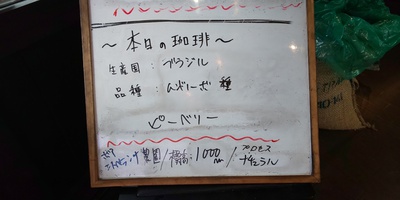 ～本日の珈琲～
生産国：ブラジル
品種：ムンドノーボ種
ピーベリー
農園／標高：1000m／プロセス ナチュラル